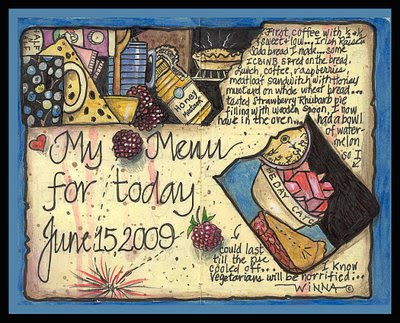 HALF
First coffee with ½ + ½
sweet + low... Irish Raisin
Soda bread I made... some
ICBINB spread on the bread.
Lunch, coffee, raspberries,
meatloaf sandwich with Honey
mustard on whole wheat bread...
tasted Strawberry Rhubarb pie
filling with wooden spoon, I now
have in the oven... had a bowl
of water-
melon
so I
Honey
My Menu
for today
June 15, 2009
DAY CAFE
could last
till the pie
cooled off... I know
Vegetarians will be horrified...
WiNNA ©